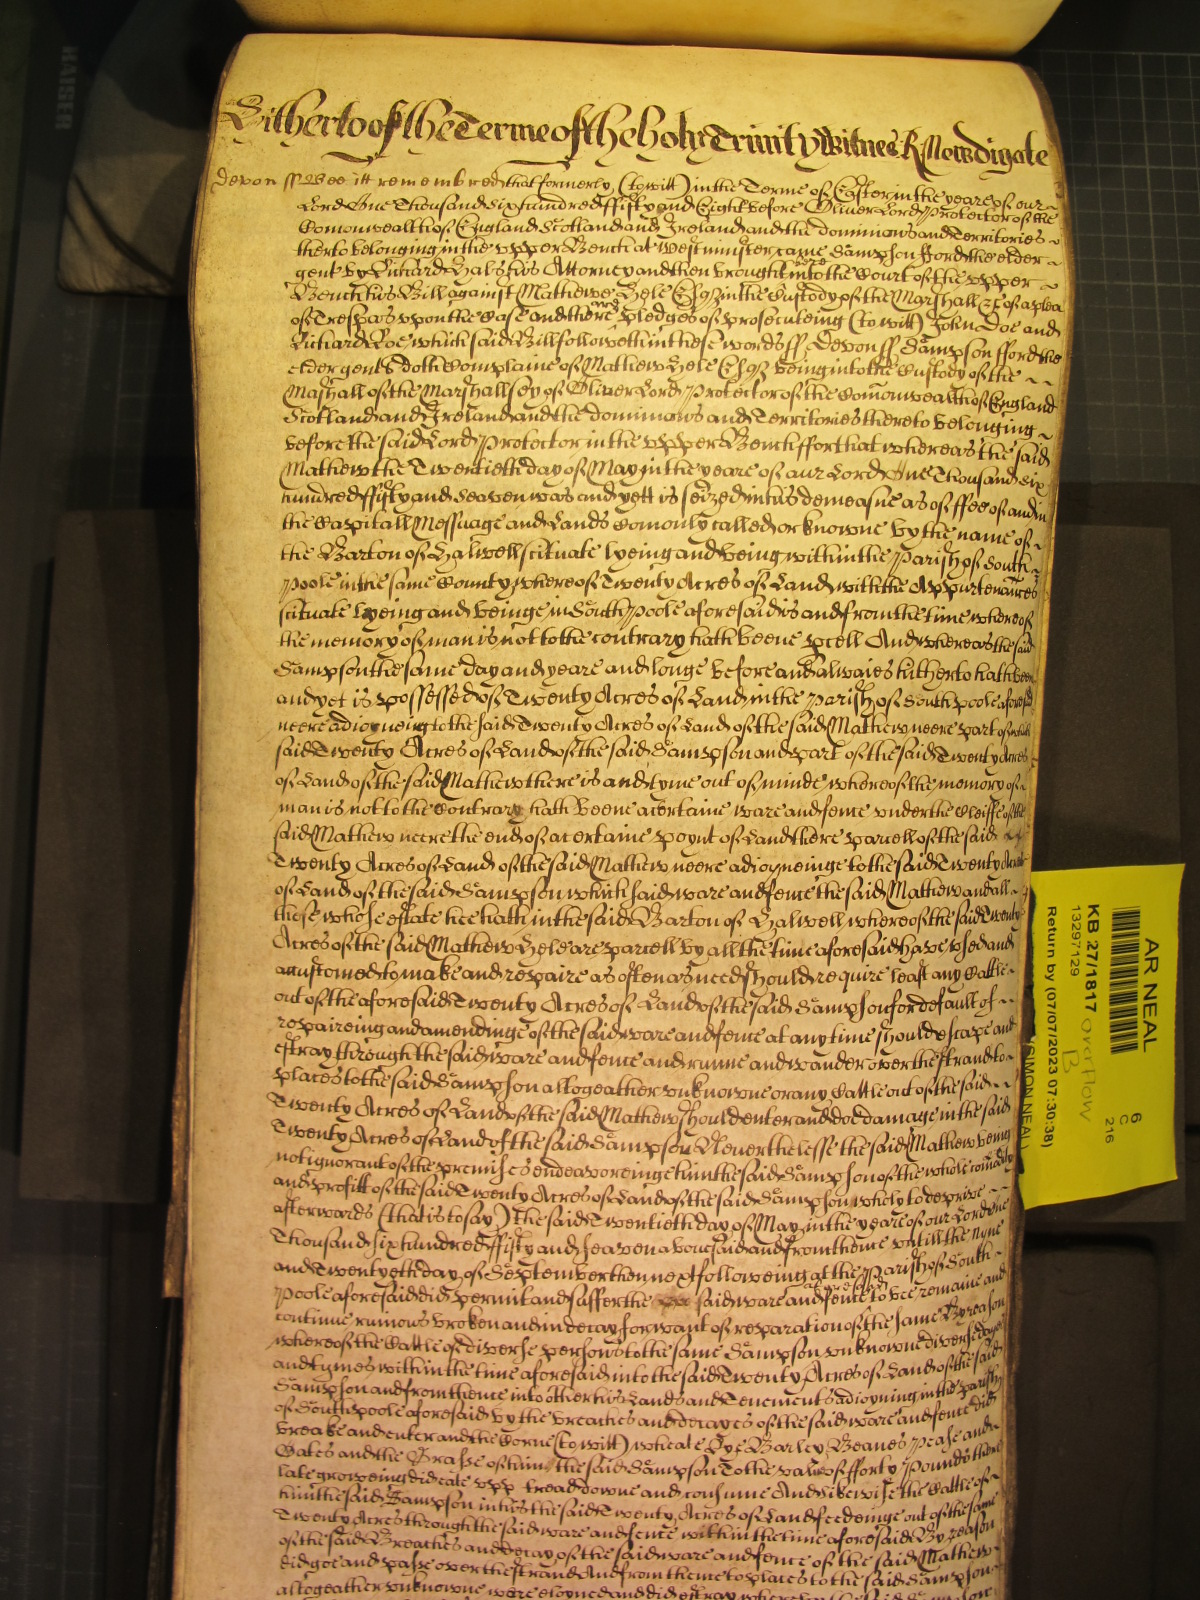 Hitherto of the Terme of the holy Trinity Witnes R Newdigate
Devon ss Bee itt remembred that formerly (to witt) in the Terme of Easter in the yeare of our
Lord One Thousand six hundred ffifty and Eight before Oliver Lord Protector of the
Comonwealth of England Scotland and Ireland and the dominions and Territories
therto belonging in the vpper Bench at Westminster came Sampson fford the elder
gent by Richard Hals his Attorney and then brought into the Court of the vpper
Bench his Bill against Mathewe Hele Esqr in the Custody of the Marshall &c of a plea
of Trespas vpon the Case and there are pledges of prosecuteing (to witt) John Doe and
Richard Roe which said Bill followeth in these words ss Devon ss Sampson fford the
elder gent doth Complaine of Mathew Hele Esqr being in to the Custody of the
Marshall of the Marshallsey of Oliver Lord Protector of the Comonwealth of England
Scotland and Ireland and the dominions and Territories thereto belonging
before the said Lord Protector in the vpper Bench ffor that whereas the said
Mathew the Twentieth day of May in the yeare of our Lord One Thousand six
hundred ffifty and seaven was and yett is seized in his demeasne as of ffee of and in
the Capitall Messuage and Lands Comonly called or knowne by the name of
the Barton of Halwell scituate lyeing and being within the Parish of South
Poole in the same County whereof Twenty Acres of Land with the Appurtenances
scituate lyeing and beinge in South Poole aforesaid is and from the time whereof
the memory of man is not to the contrary hath beene pcell And whereas the said
Sampson the same day and yeare and longe before and alwaies hitherto hath been
and yet is possessed of Twenty Acres of Land in the Parish of South poole aforesd
neere adioyneing to the said Twenty Acres of Land of the said Mathew neere part of which
said Twenty Acres of Land of the said Sampson and part of the said Twenty Acres
of Land of the said Mathew there is and tyme out of minde whereof the memory of
man is not to the Contrary hath beene a certaine ware and fence vnder the Cleiffe of the
said Mathew neere the end of a certaine poynt of Land there parcell of the said
Twenty Acres of Land of the said Mathew neere adioyneinge to the said Twenty Acres
of Land of the said Sampson which said ware and fence the said Mathew and all
those whose estate hee hath in the said Barton of Halwell whereof the said Twenty
Acres of the said Mathew Hele are parcell by all the time aforesaid have vsed and
accustomed to make and repaire as often as need should require least any Cattle
out of the aforesaid Twenty Acres of Land of the said Sampson for default of
repaireing and amendinge of the said ware and fence at any time should escape and
estray through the said ware and fence and runne and wander over the strand to
places to the said Sampson altogeather vnknowne or any Cattle out of the said
Twenty Acres of Land of the said Mathew should enter and doe damage in the said
Twenty Acres of Land of the said Sampson Neuerthelesse the said Mathew being
not ignorant of the premises endeavoreinge him the said Sampson of the whole comodity
and profitt of the said Twenty Acres of Land of the said Sampson wholy to deprive
afterwards (that is to say) the said Twentieth day of May in the yeare of our Lord One
Thousand six hundred ffifty and seaven abouesaid and from thence vntill the nyne
and Twentyeth day of September then next followeing at the Parish of South
Poole aforesaid did permit and suffer the said ware and fence aforesaid to bee remaine and
continue ruinous broken and in decay for want of reparation of the same By reason
whereof the Cattle of diverse persons to the same Sampson vnknowne diverse dayes
and tymes within the time aforesaid into the said Twenty Acres of Land of the said
Sampson and from thence into other his Lands and Tenements adioyning in the parish
of South poole aforesaid by the breaches and decayes of the said ware and fence did
breake and enter and the Corne (to witt) wheate Rye Barley Beanes Pease and
Oates and the Grasse of him the said Sampson To the value of fforty Pounds there
late groweing did eate vpp tread downe and consume And likewise the Cattle of
him the said Sampson in his the said Twenty Acres of Land feedeinge out of the same
Twenty Acres through the said ware and fence within the time aforesaid By reason
of the said Breaches and decay of the said ware and fence of the said Mathew
did goe and passe over the strand And from thence to places to the said Sampson
altogeather vnknowne were eloyned and did estray
AR NEAL
KB 27/1817
13297129
Return by (07/07/2023 07:30:38)
SIMON NEAL
overflow
B
6
C
216
KAISER